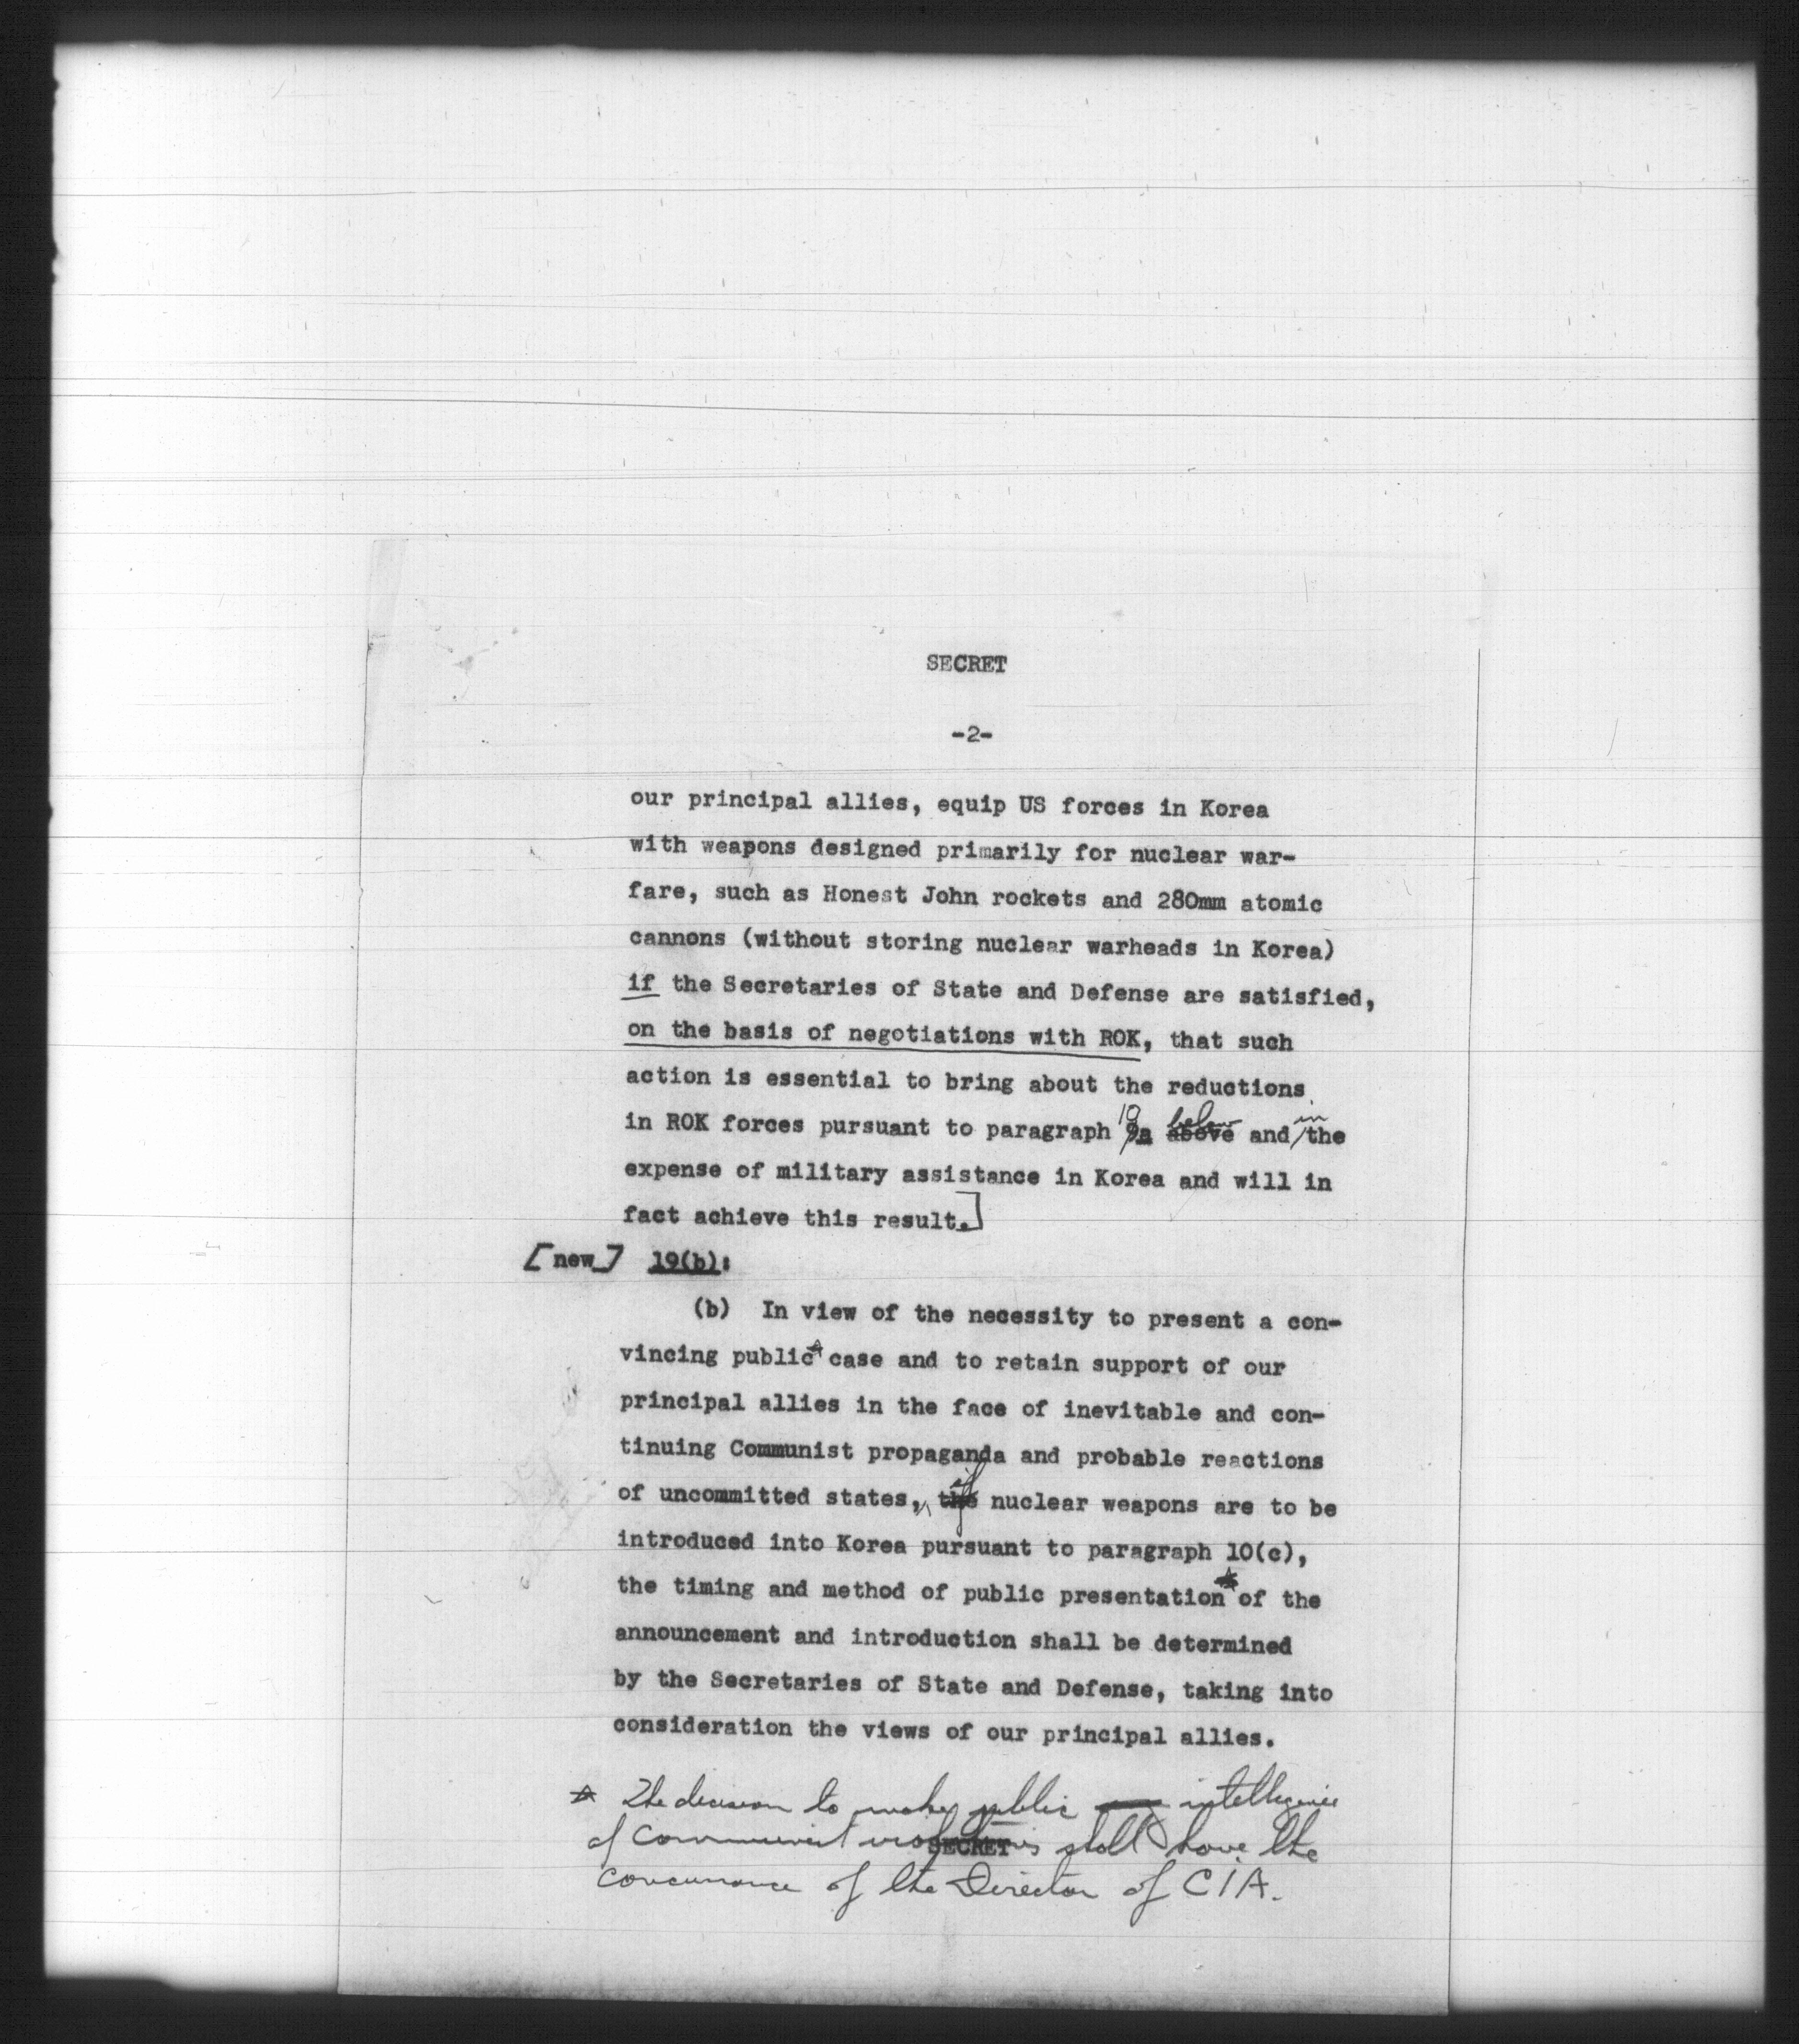 SECRET
-2-
our principal allies, equip US forces in Korea
with weapons designed primarily for nuclear war-
fare, such as Honest John rockets and 280mm atomic
cannons (without storing nuclear warheads in Korea)
if the Secretaries of State and Defense are satisfied,
on the basis of negotiations with ROK, that such
action is essential to bring about the reductions
in ROK forces pursuant to paragraph 9a 10 above below and in the
expense of military assistance in Korea and will in
fact achieve this result.]
[new] 19(b):
(b) In view of the necessity to present a con-
vincing public* case and to retain support of our
principal allies in the face of inevitable and con-
tinuing Communist propaganda and probable reactions
of uncommitted states, the if nuclear weapons are to be
introduced into Korea pursuant to paragraph 10(c),
the timing and method of public presentation of the
announcement and introduction shall be determined
by the Secretaries of State and Defense, taking into
consideration the views of our principal allies.
* The decision to make public intelligence
of Communist violations shall have the
SECRET
concurrence of the Director of CIA.